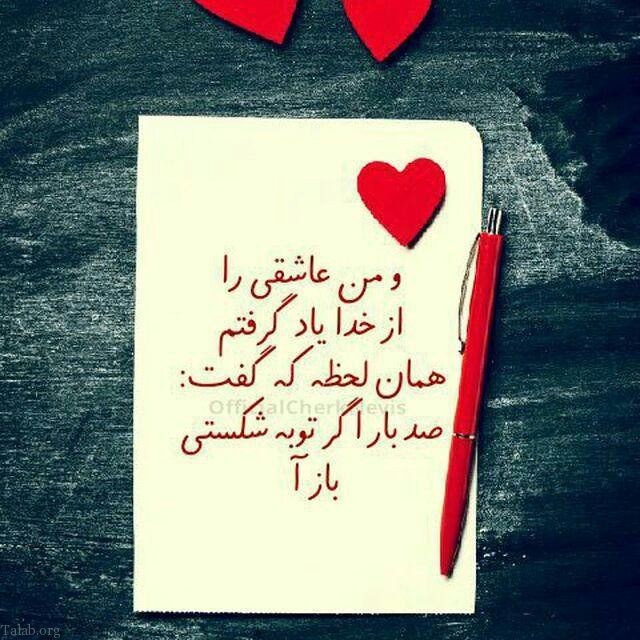 و من عاشقی را
از خدا یاد گرفتم
همان لحظه که گفت:
صد بار اگر توبه شکستی
باز آ
Talab.org